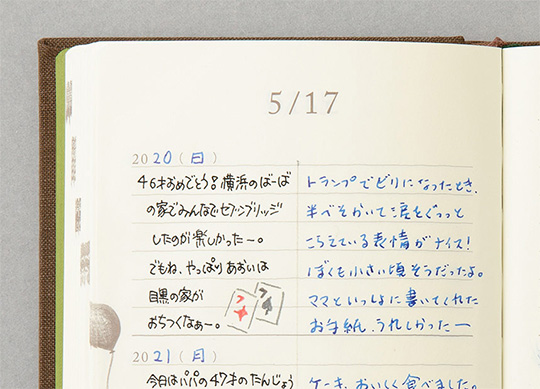 5/17
2020(日)
46才おめでとう!横浜のばーば
の家でみんなでセブンブリッジ
したのが楽しかったー。
でもね、やっぱりあおいは
目黒の家が
おちつくなぁー。
7 7
トランプでビリになったとき、
半べそかいて涙をぐっと
こらえている表情がナイス!
ぼくも小さい頃そうだったよ。
ママといっしょに書いてくれた
お手紙、うれしかったー
2021(月)
今日はパパの47才のたんじょう
ケーキ、おいしく食べました。